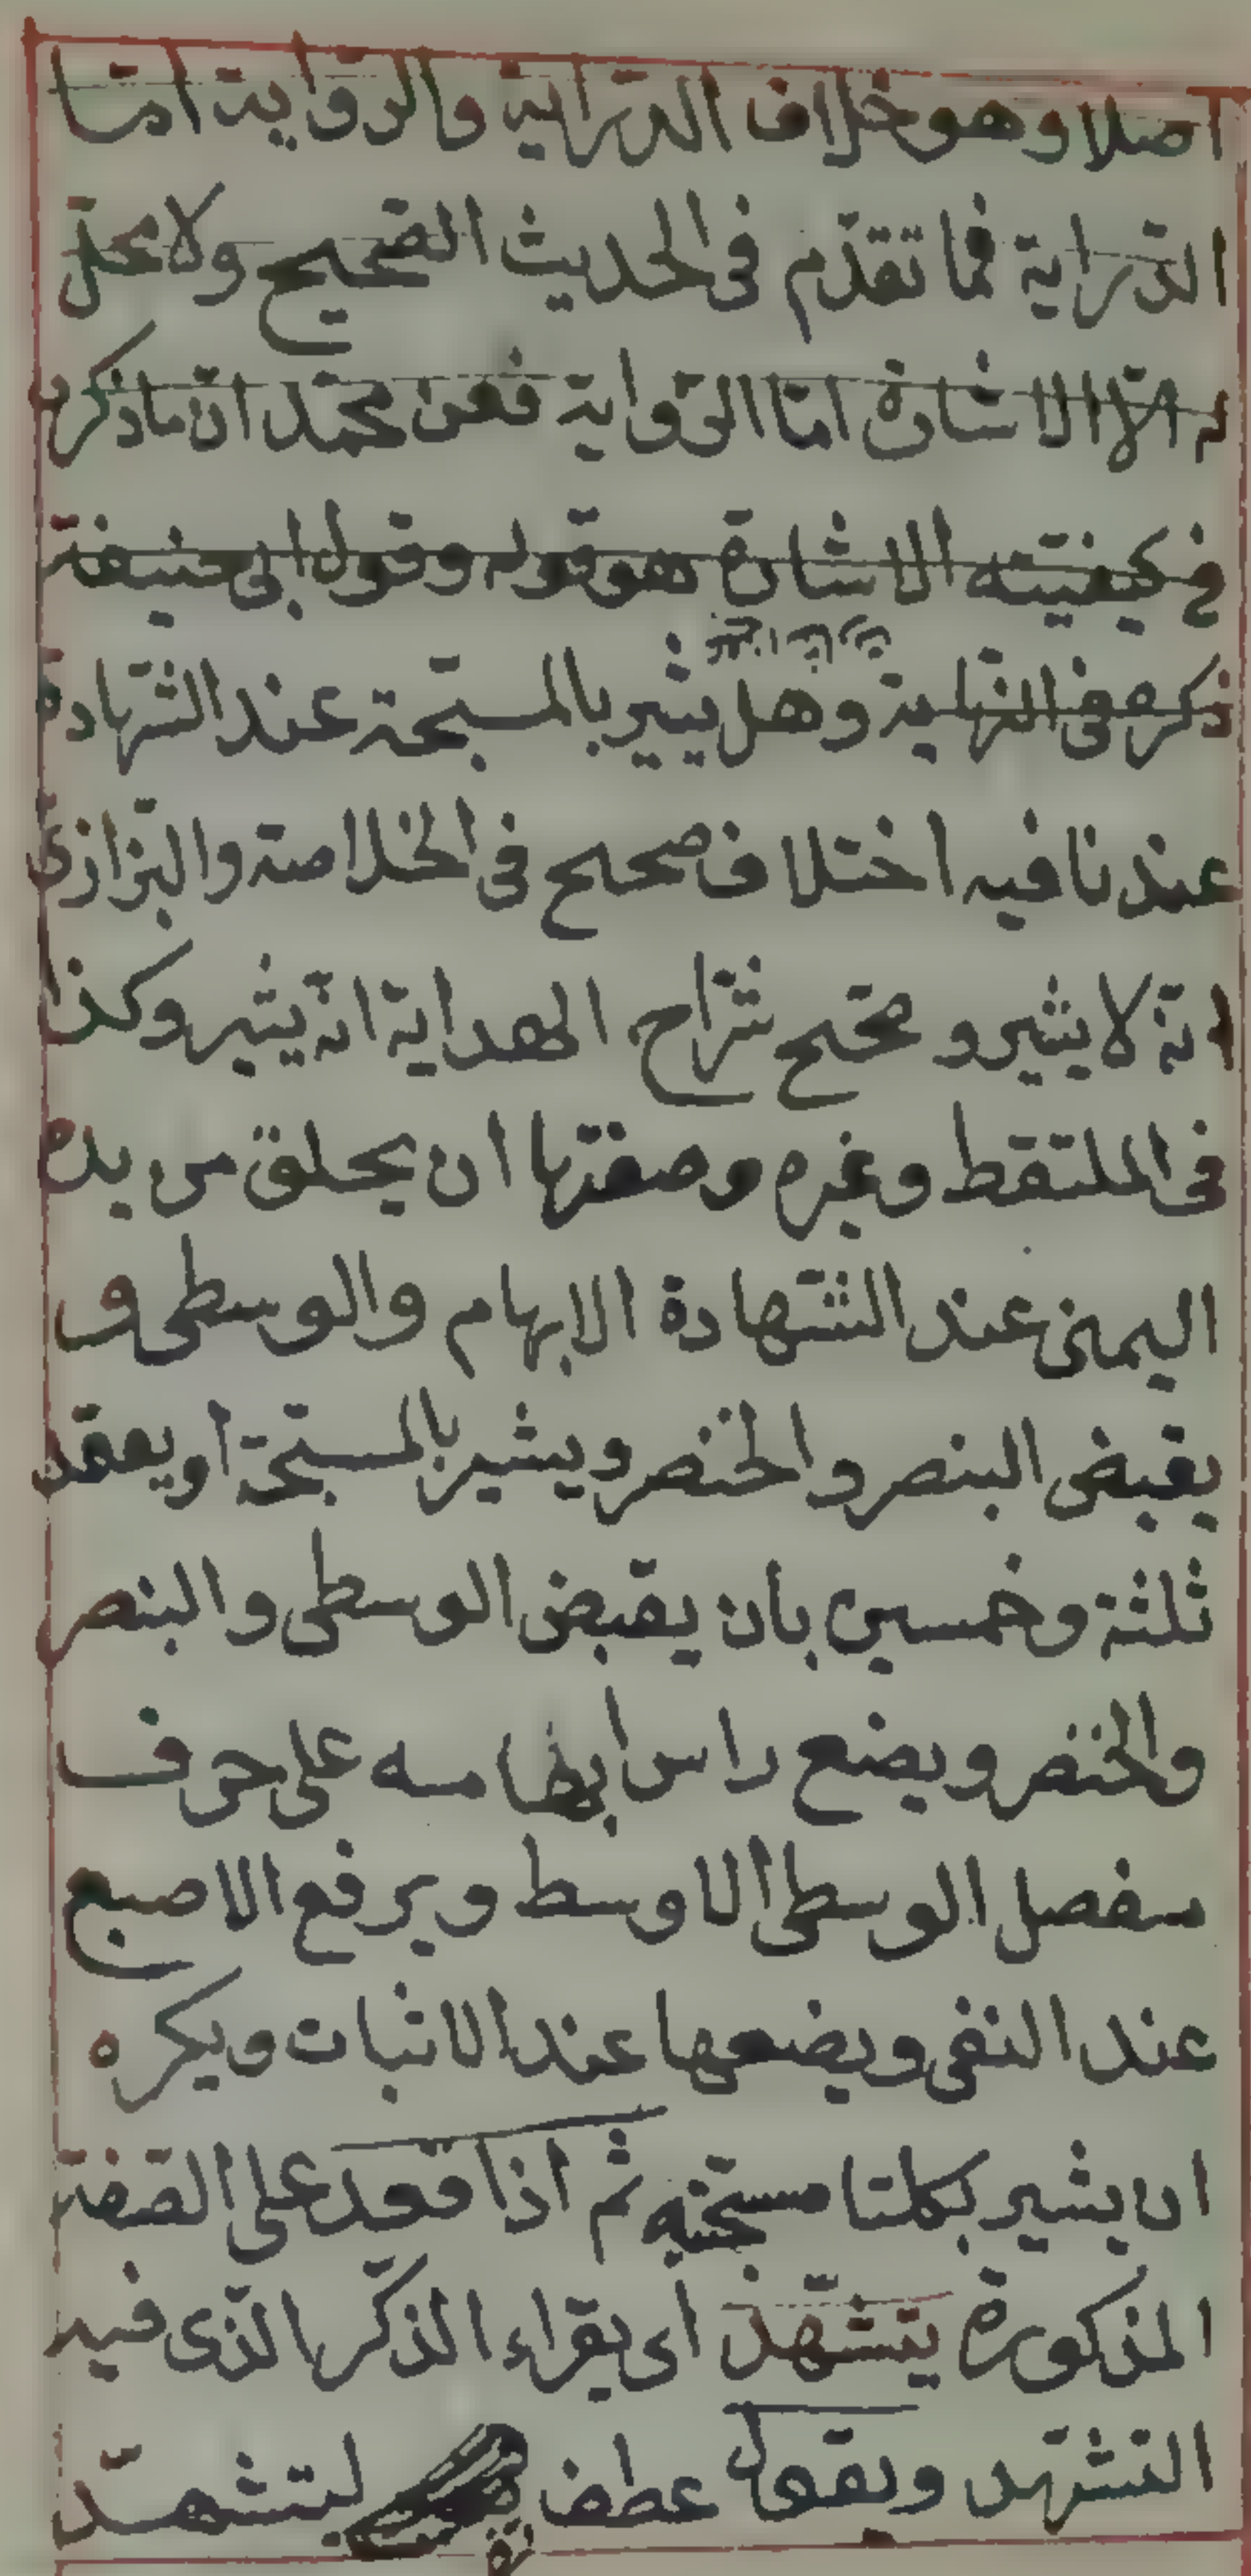 اصلا وهو خلاف الدراية والرواية اما
الدراية فما تقدم فى الحديث الصحيح ولا محل
له الا الاشارة اما الرواية فعن محمد ان ما ذكره
فى كيفيته الاشارة هو قوله وقول ابى حنيفة
ذكره فى النهاية وهل يشير بالمسبحة عند الشهادة
عندنا فيه اختلاف صحح فى الخلاصة والبزازى
انه لا يشير و صحح شراح الهداية انه يشير وكذا
فى الملتقط وغيره وصفتها ان يحلق من يده
اليمنى عند الشهادة الابهام والوسطى و
يقبض البنصر والخنصر ويشير بالمسبحة او يعقد
ثلثة وخمسين بأن يقبض الوسطى والبنصر
والخنصر ويضع راس ابهامه على حرف
مفصل الوسطى الاوسط ويرفع الاصبع
عند النفى ويضعها عند الاثبات ويكره
ان يشير بكلتا مسبحتيه ثم اذا قعد على الصفة
المذكورة يتشهد اى يقراء الذكر الذى فيه
التشهد ويقول عطف ليتشهد